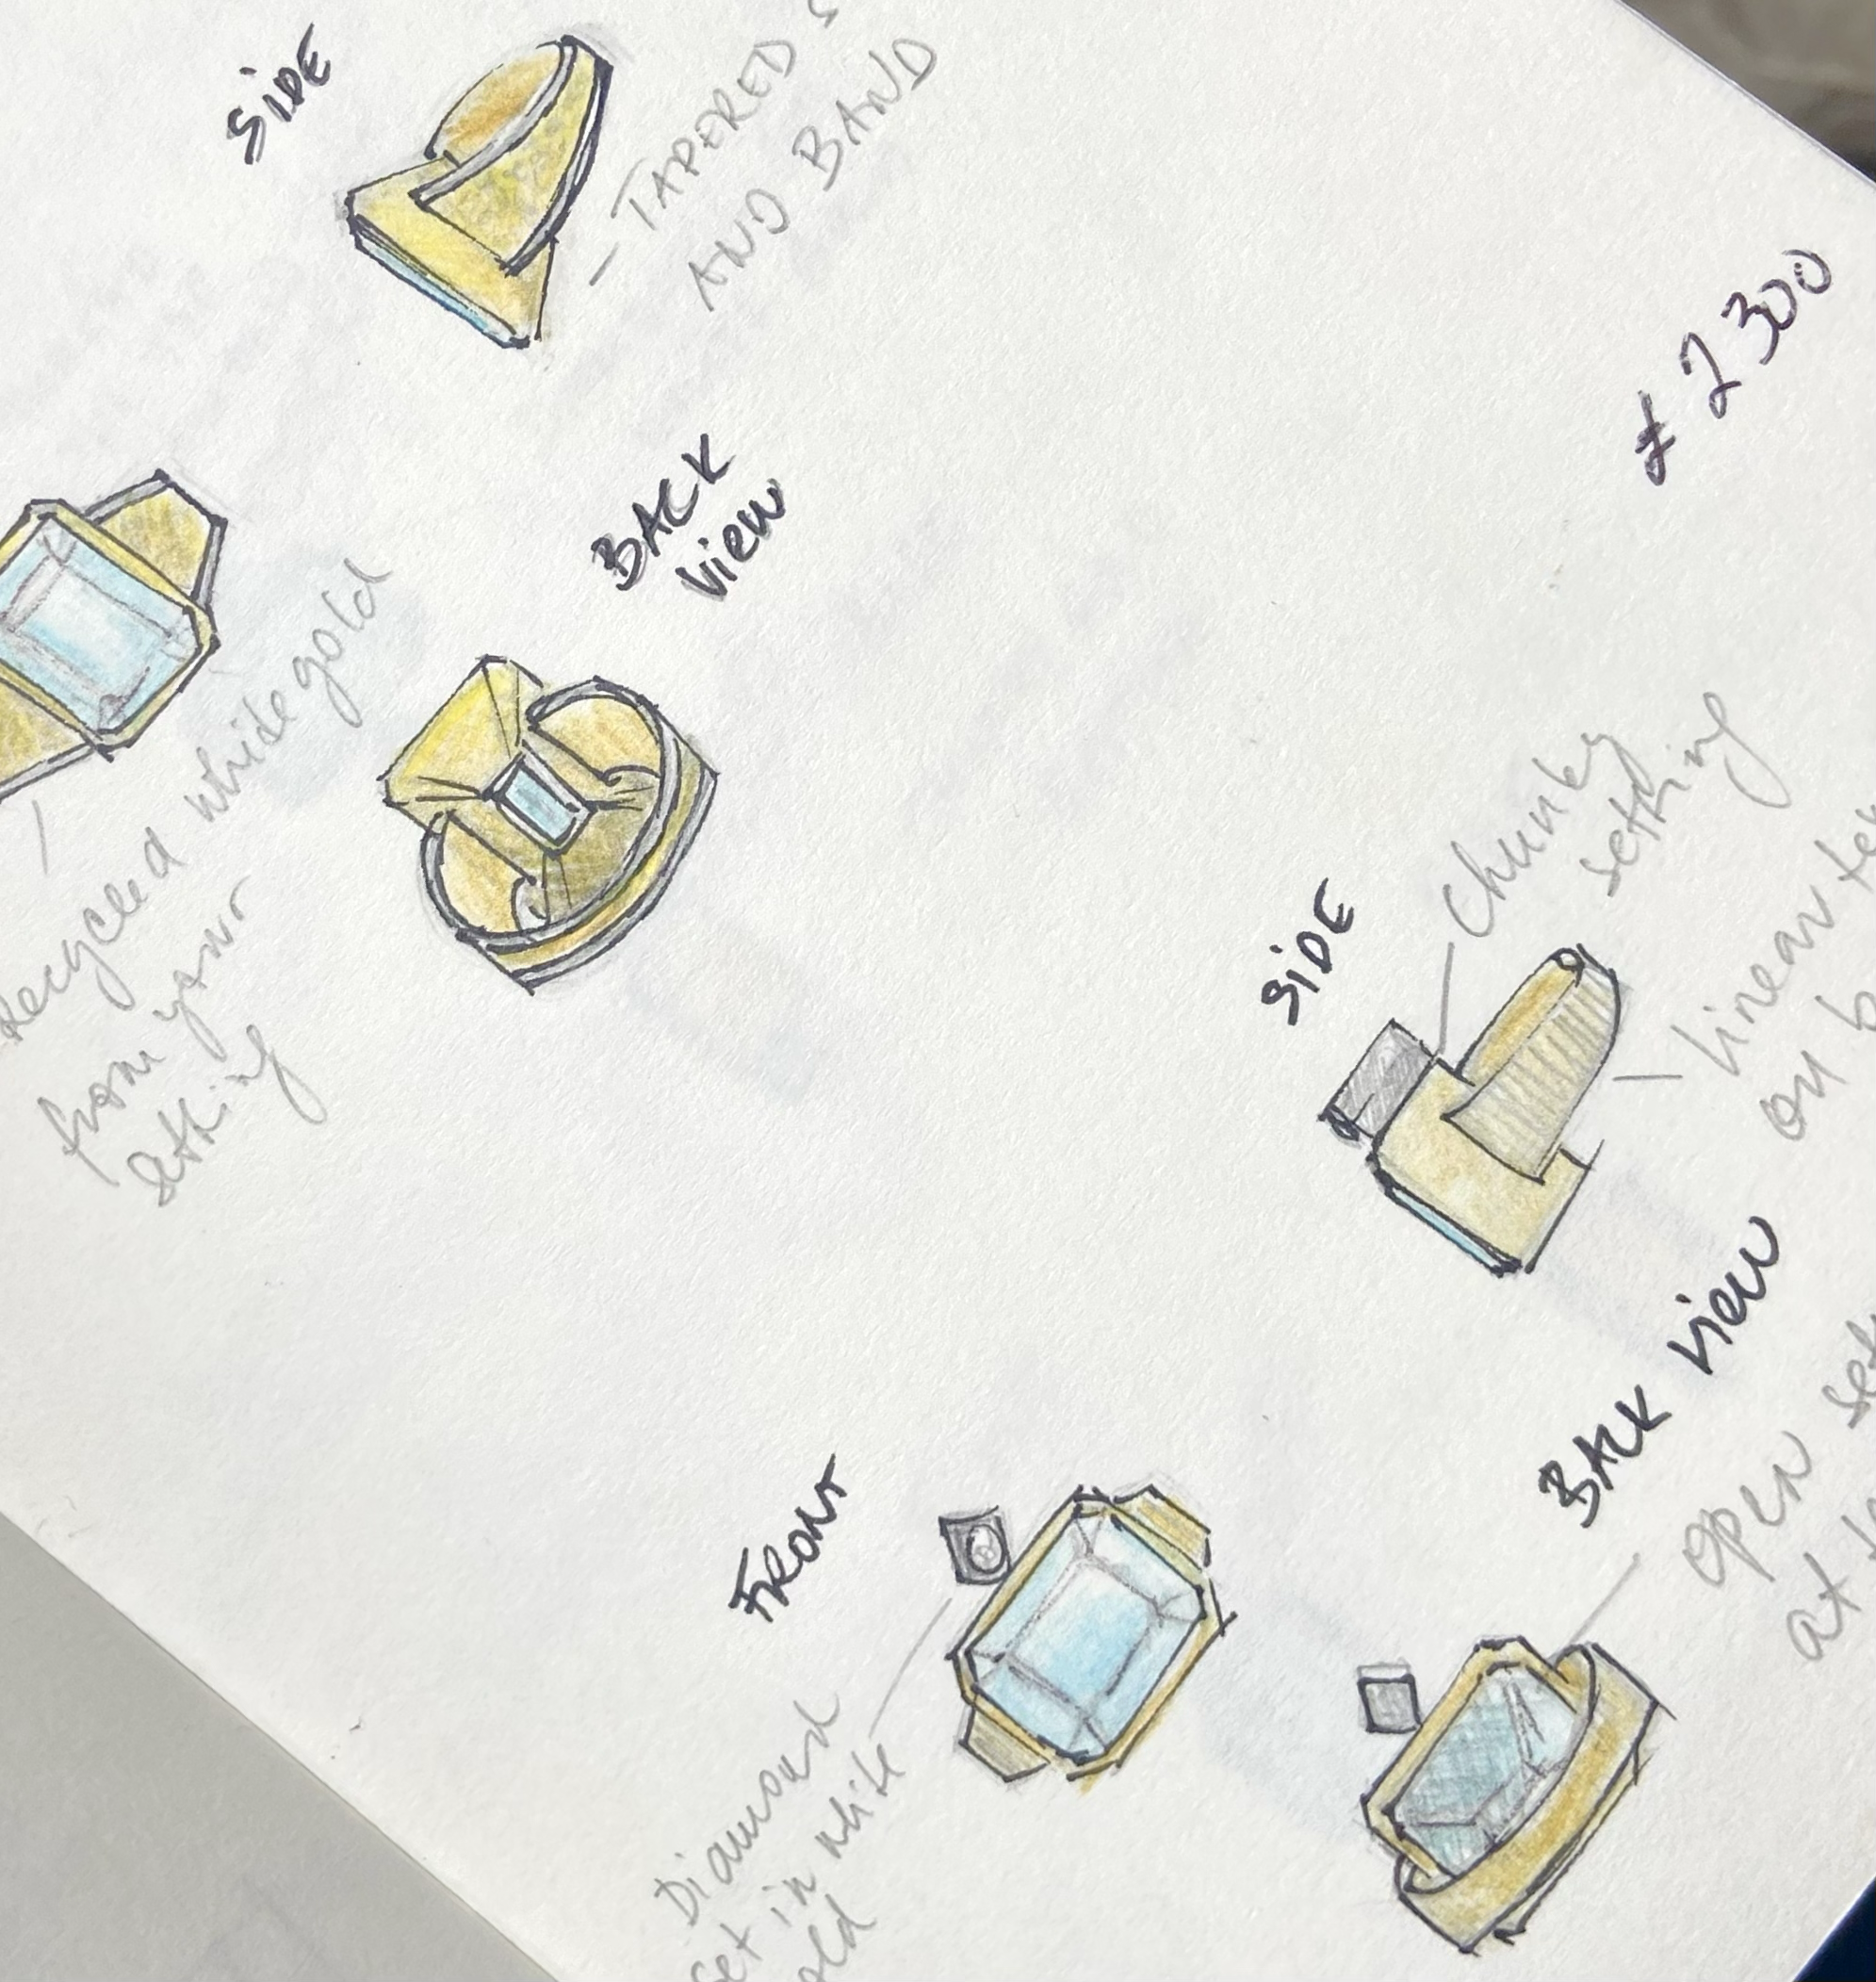 SIDE
TAPERED
AND BAND
£2300
BACK
VIEW
Recycled white gold
from your
setting
SIDE
Chunky
setting
linear
on
BACK VIEW
open
at
FRONT
Diamond
set in white
gold